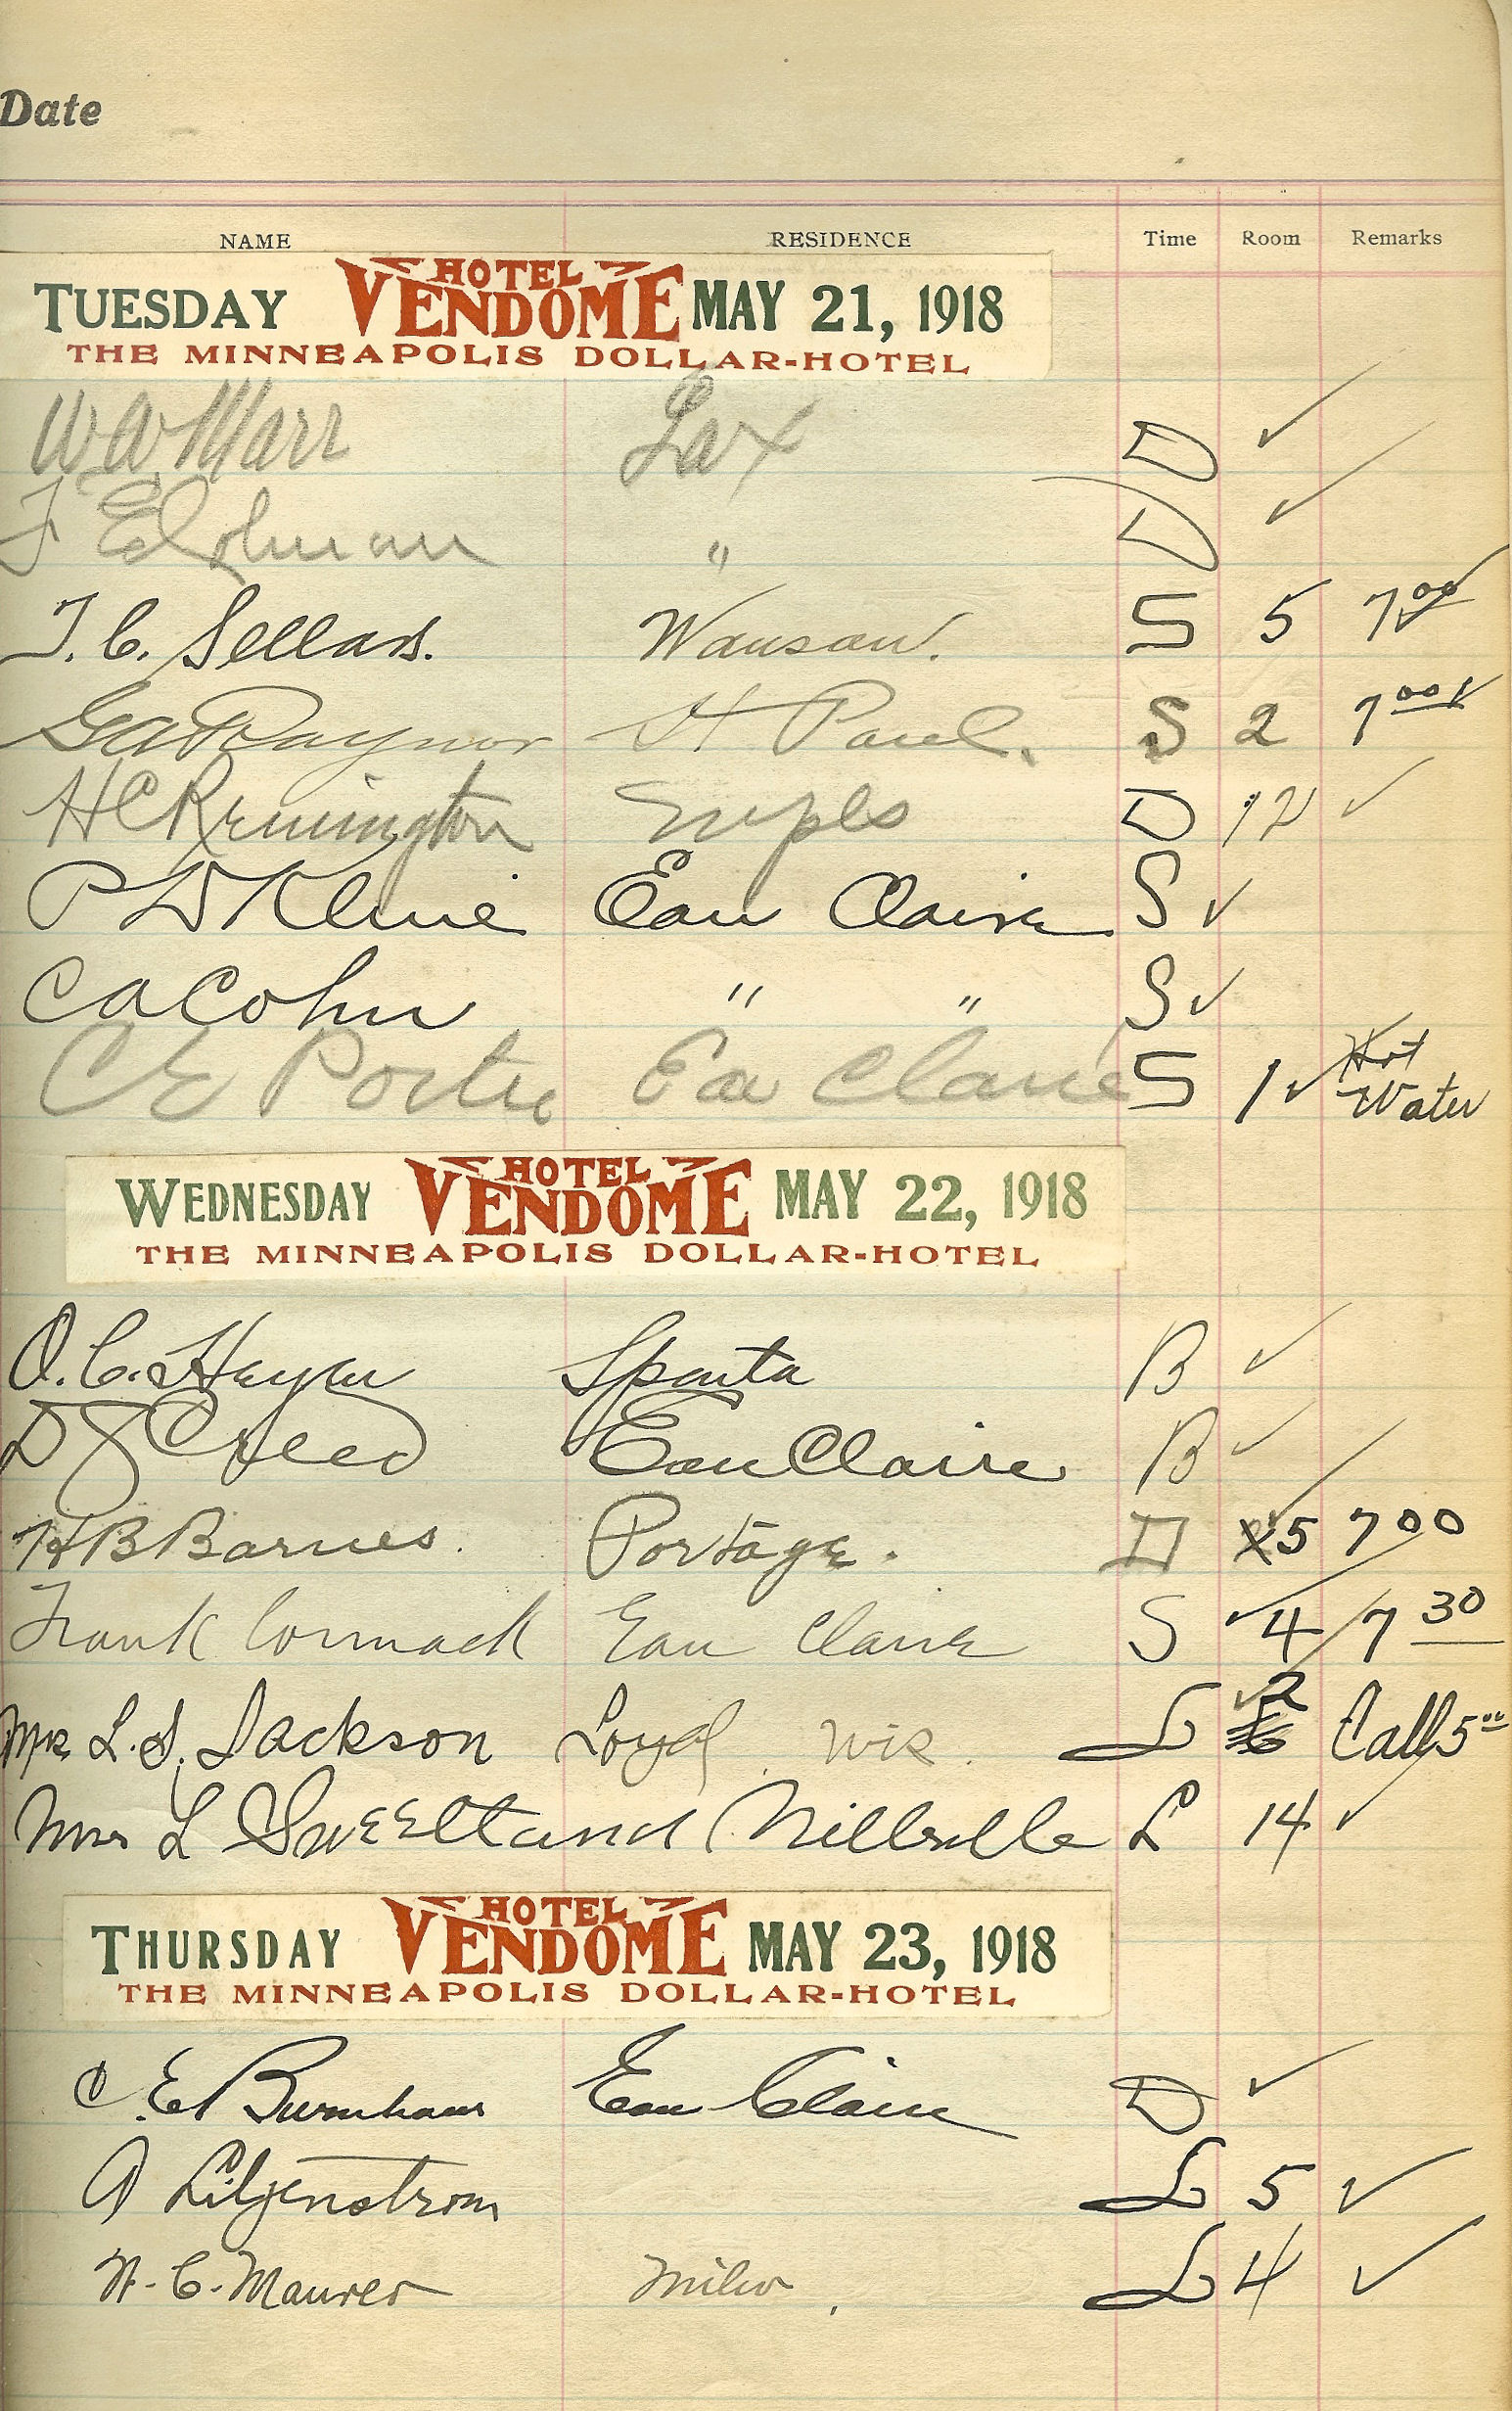 Date
NAME RESIDENCE Time Room Remarks
TUESDAY HOTEL VENDOME MAY 21, 1918
THE MINNEAPOLIS DOLLAR-HOTEL
W A Marr Lax D ✓
F " D ✓
T. C. Sellars. Wausau. S 5 7 00 ✓
G A Raynor St Paul. S 2 7 00 ✓
H C Remington Mpls D 12 ✓
P D Kline Eau Claire S ✓
C A Cohn " " S ✓
C E Porter Eau Claire S 1 ✓ Hot
Water
WEDNESDAY HOTEL VENDOME MAY 22, 1918
THE MINNEAPOLIS DOLLAR-HOTEL
O. C. Sparta B ✓
Eau Claire B ✓
H B Barnes. Portage. D 5 7 00
Frank Cormack Eau Claire S ✓ 4 7 30
Mrs L. S. Jackson Loyal Wis. L ✓ 2 Call 5 00
Mrs L Sweetland Neillsville L 14 ✓
THURSDAY HOTEL VENDOME MAY 23, 1918
THE MINNEAPOLIS DOLLAR-HOTEL
C. E. Burnham Eau Claire D ✓
A Liljenstrom L 5 ✓
W. C. Maurer Milw. L 4 ✓